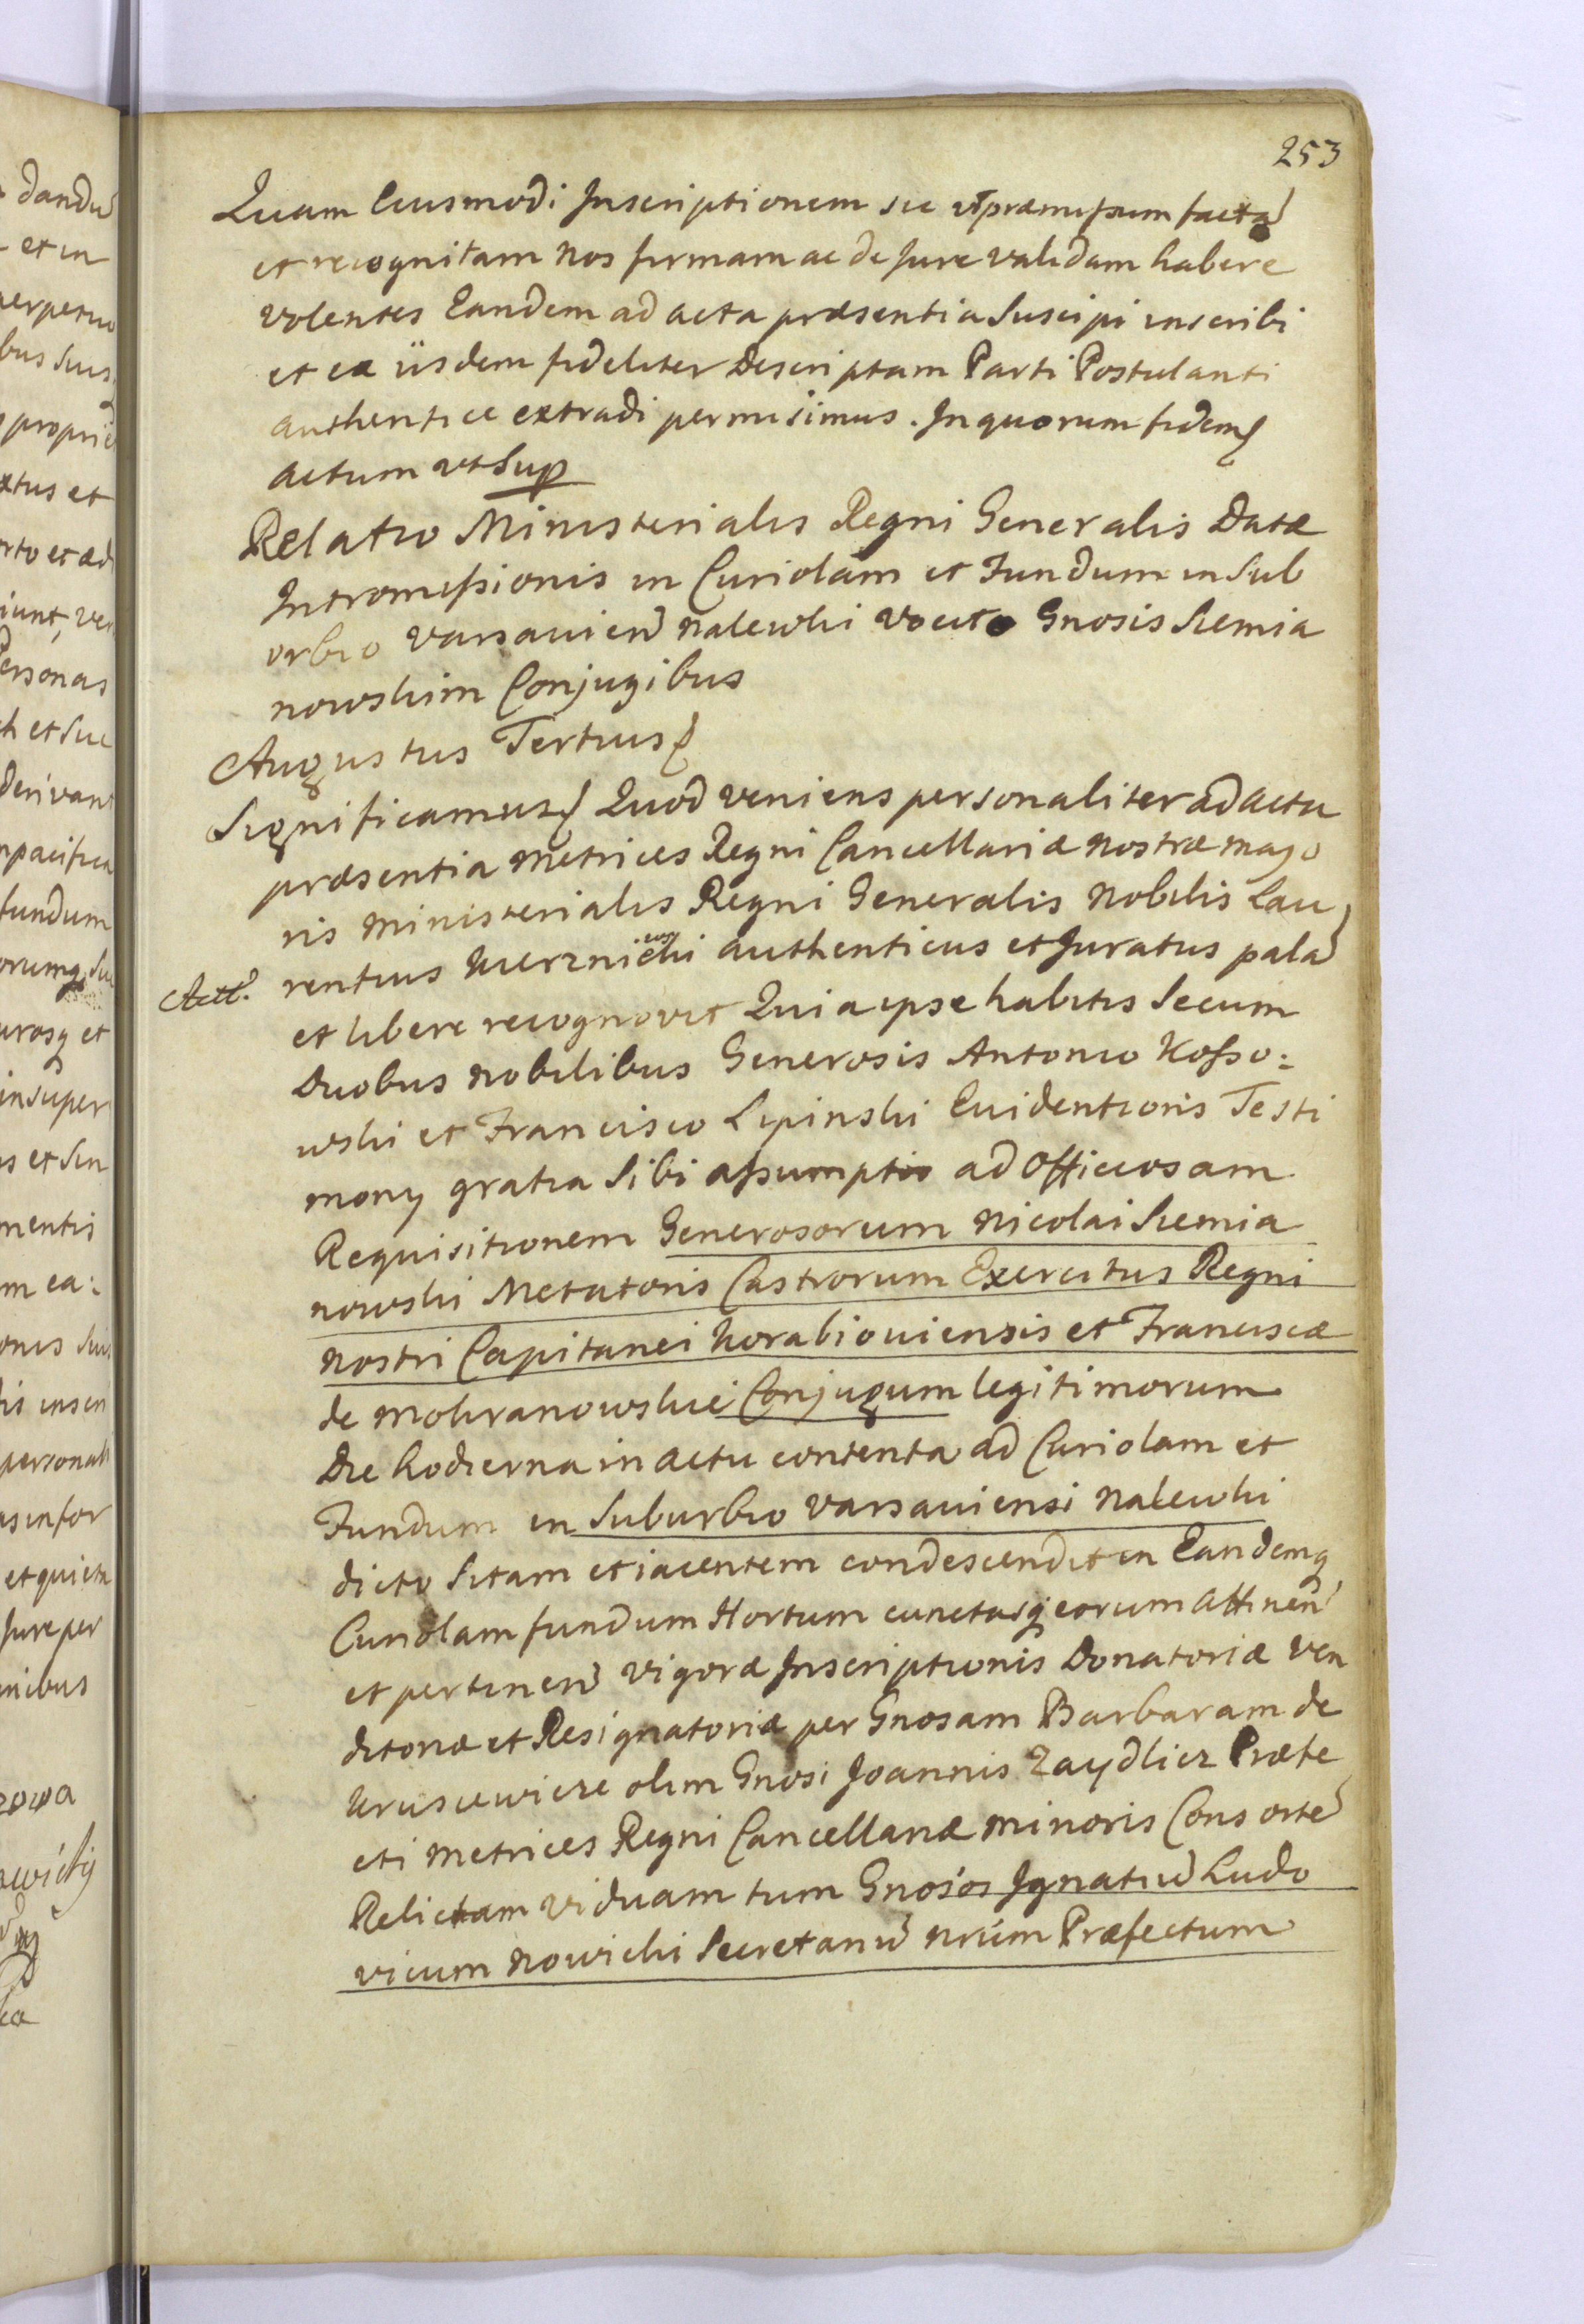 253
Quam Eiusmodi Inscriptionem sic ut præmissum factã
et recognitam nos firmam ac de Jure validam habere
volentes Eandem ad acta præsentia Suscipi inscribi
et ex iisdem fideliter Descriptam Parti Postulanti
authentice extradi permisimus. In quorum fidem
actum ut Sup
Relatio Ministerialis Regni Generalis Datæ
Intromissionis in Curiolam et Fundum in Sub
orbio Varsavien Nalewki vocito Gnosis Siemia
nowskim Conjugibus
Augustus Tertius
Significamus Quod veniens personaliter ad acta
præsentia Metrices Regni Cancellariæ nostræ majo
ris Ministerialis Regni Generalis Nobilis Lau
rentius authenticus et Juratus palã
Actt.
et libere recognovit Quia ipse habitis Secum
Duobus nobilibus Generosis Antonio Kosso:
wski et Francisco Lipinski Evidentioris Testi
mony gratia Sibi assumptis ad officiosam
Requisitionem Generosorum Nicolai Siemia
nowski Metatoris Castrorum Exercitus Regni
nostri Capitanei Korabioviensis et Franciscæ
de Mokranowskie Conjugum legitimorum
Die hodierna in actu contenta ad Curiolam et
Fundum in Suburbio Varsaviensi Nalewki
dicto Sitam et iacentem condescendit in Eandemq
Curiolam fundum Hortum cunctasq eorum attinen
et pertinen vigore Inscriptionis Donatoriæ Ven
ditoriæ et Resignatoriæ per Gnosam Barbaram de
Kruscewicze olim Gnosi Joannis Zaydlicz Præfe
cti Metrices Regni Cancellariæ minoris Consortẽ
Relictam viduam tum Gnosos Ignatiũ Ludo
vicum Nowicki Secretariũ nrum Præfectum